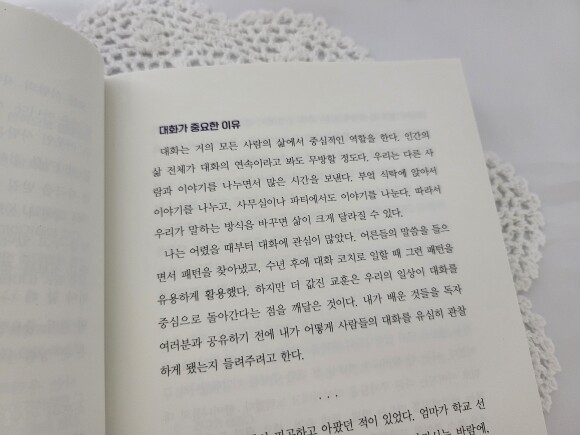 대화가 중요한 이유
대화는 거의 모든 사람의 삶에서 중심적인 역할을 한다. 인간의
삶 전체가 대화의 연속이라고 봐도 무방할 정도다. 우리는 다른 사
람과 이야기를 나누면서 많은 시간을 보낸다. 부엌 식탁에 앉아서
이야기를 나누고, 사무실이나 파티에서도 이야기를 나눈다. 따라서
우리가 말하는 방식을 바꾸면 삶이 크게 달라질 수 있다.
나는 어렸을 때부터 대화에 관심이 많았다. 어른들의 말씀을 들으
면서 패턴을 찾아냈고, 수년 후에 대화 코치로 일할 때 그런 패턴을
유용하게 활용했다. 하지만 더 값진 교훈은 우리의 일상이 대화를
중심으로 돌아간다는 점을 깨달은 것이다. 내가 배운 것들을 독자
여러분과 공유하기 전에 내가 어떻게 사람들의 대화를 유심히 관찰
하게 됐는지 들려주려고 한다.
...
피곤하고 아팠던 적이 있었다. 엄마가 학교 선
바람에,